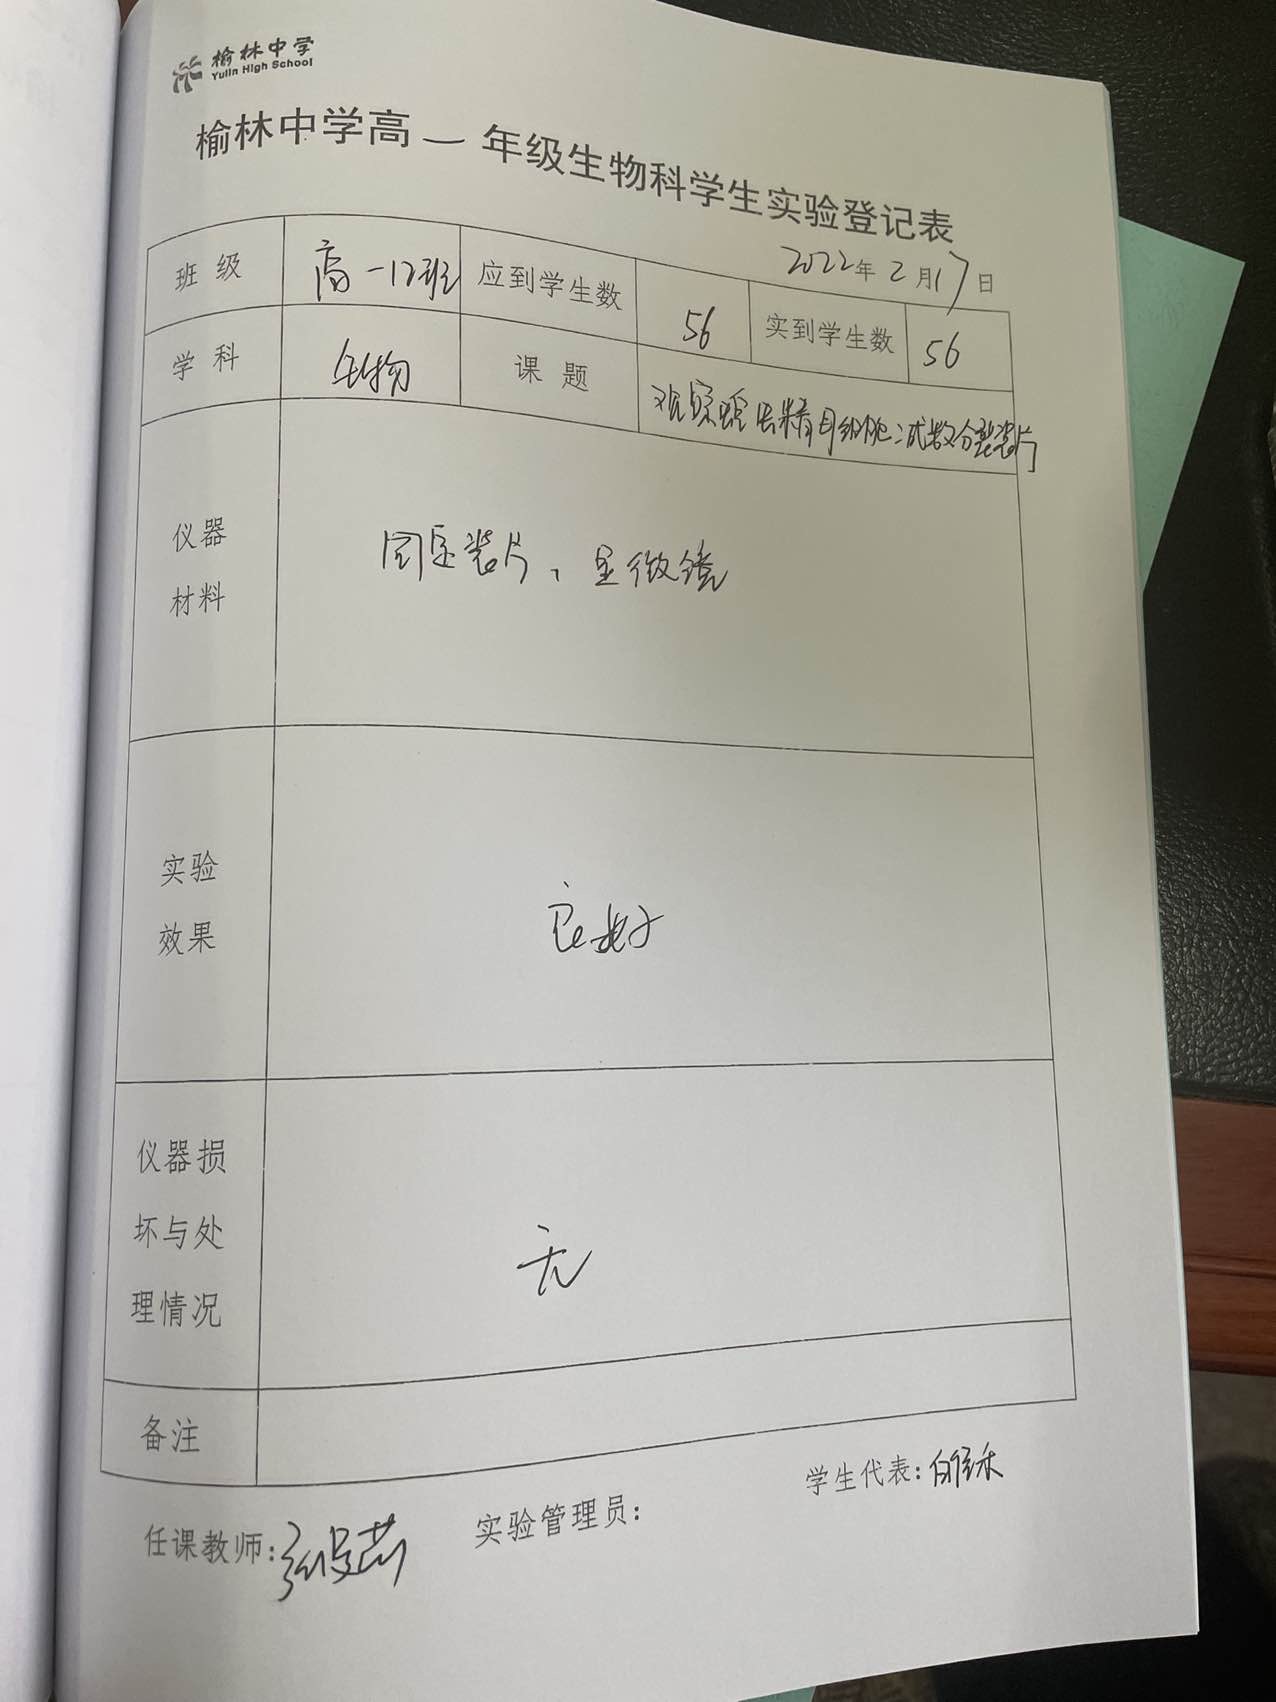 榆林中学
Yulin High School
榆林中学高一年级生物科学生实验登记表
2022年2月17日
班级 高一12班 应到学生数 56 实到学生数 56
学科 生物 课题 观察蝗虫精母细胞减数分裂装片
仪器
材料
固定装片、显微镜
实验
效果
良好
仪器损
坏与处
理情况
无
备注
学生代表:
任课教师: 实验管理员: